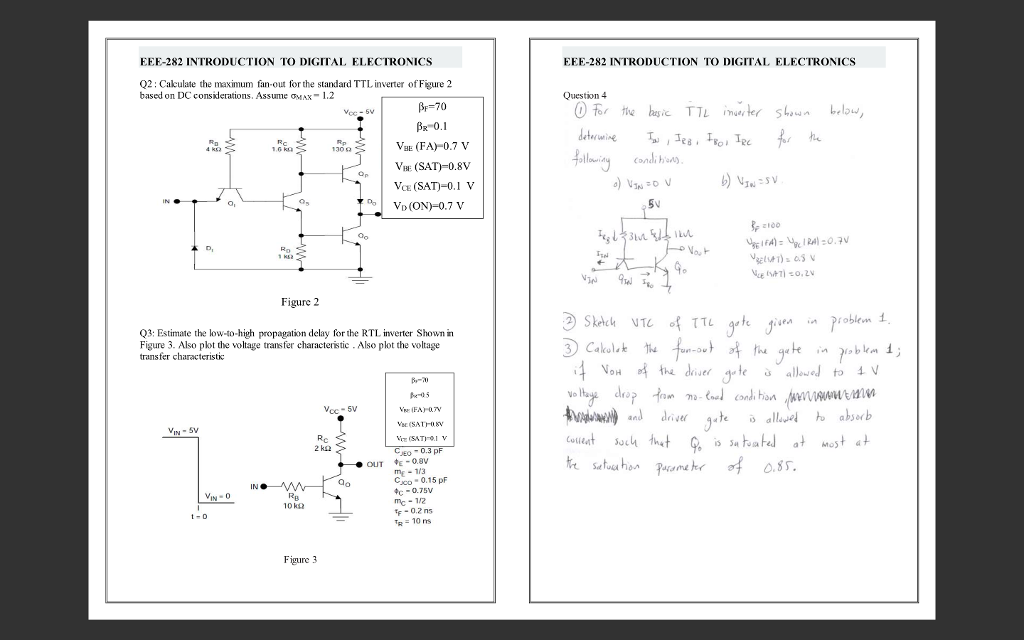 EEE-282 INTRODUCTION TO DIGITAL ELECTRONICS
Q2 : Calculate the maximum fan-out for the standard TTL inverter of Figure 2
based on DC considerations. Assume σMAX = 1.2
VCC = 5V
RB
4 kΩ
RC
1.6 kΩ
RP
130 Ω
QP
IN
QI
QS
DO
QO
DI
RD
1 kΩ
βF=70
βR=0.1
VBE (FA)=0.7 V
VBE (SAT)=0.8V
VCE (SAT)=0.1 V
VD (ON)=0.7 V
Figure 2
Q3: Estimate the low-to-high propagation delay for the RTL inverter Shown in
Figure 3. Also plot the voltage transfer characteristic . Also plot the voltage
transfer characteristic
VIN = 5V
VIN = 0
t = 0
VCC = 5V
RC
2 kΩ
OUT
QO
IN
RB
10 kΩ
βF=70
βR=0.5
VBE (FA)=0.7V
VBE (SAT)=0.8V
VCE (SAT)=0.1 V
CJEO = 0.3 pF
ΦE = 0.8V
mE = 1/3
CJCO = 0.15 pF
ΦC = 0.75V
mC = 1/2
τF = 0.2 ns
τR = 10 ns
Figure 3
EEE-282 INTRODUCTION TO DIGITAL ELECTRONICS
Question 4
① For the basic TTL inverter shown below,
determine IIN, IRB, IBO, IRC for the
following conditions.
a) VIN = 0 V b) VIN = 5V.
5V
3kΩ
1kΩ
Vout
IIN
VIN
QIN
IBO
QO
βF = 100
VBE(FA) = VBC(RA) = 0.7V
VBE(SAT) = 0.8 V
VCE(SAT) = 0.2V
② Sketch VTC of TTL gate given in problem 1.
③ Calculate the fan-out of the gate in problem 1;
if VOH of the driver gate is allowed to 1 V
voltage drop from no-load condition
and driver gate is allowed to absorb
current such that QO is saturated at most at
the saturation parameter of 0.85.